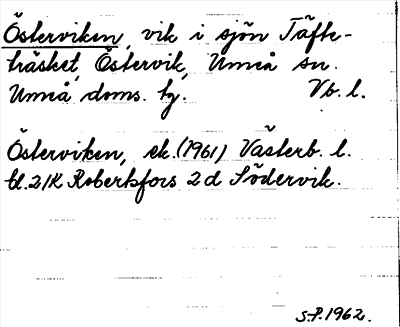 Österviken, vik i sjön Täfte-
träsket, Östervik, Umeå sn.
Umeå doms. tg. Vb. l.
Österviken, ek. (1961) Västerb. l.
bl. 21K Robertsfors 2d Södervik.
S.P. 1962.